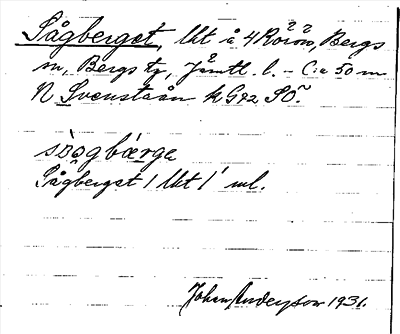 Sågberget, lkt å 4 Rörön, Bergs
sn, Bergs tg, Jämtl. l. - C:a 50 m
N Svenstaån k G 92 SO.
sɔ̀gbærge
Sågberget / lkt / ml.
Johan Anderson 1931.